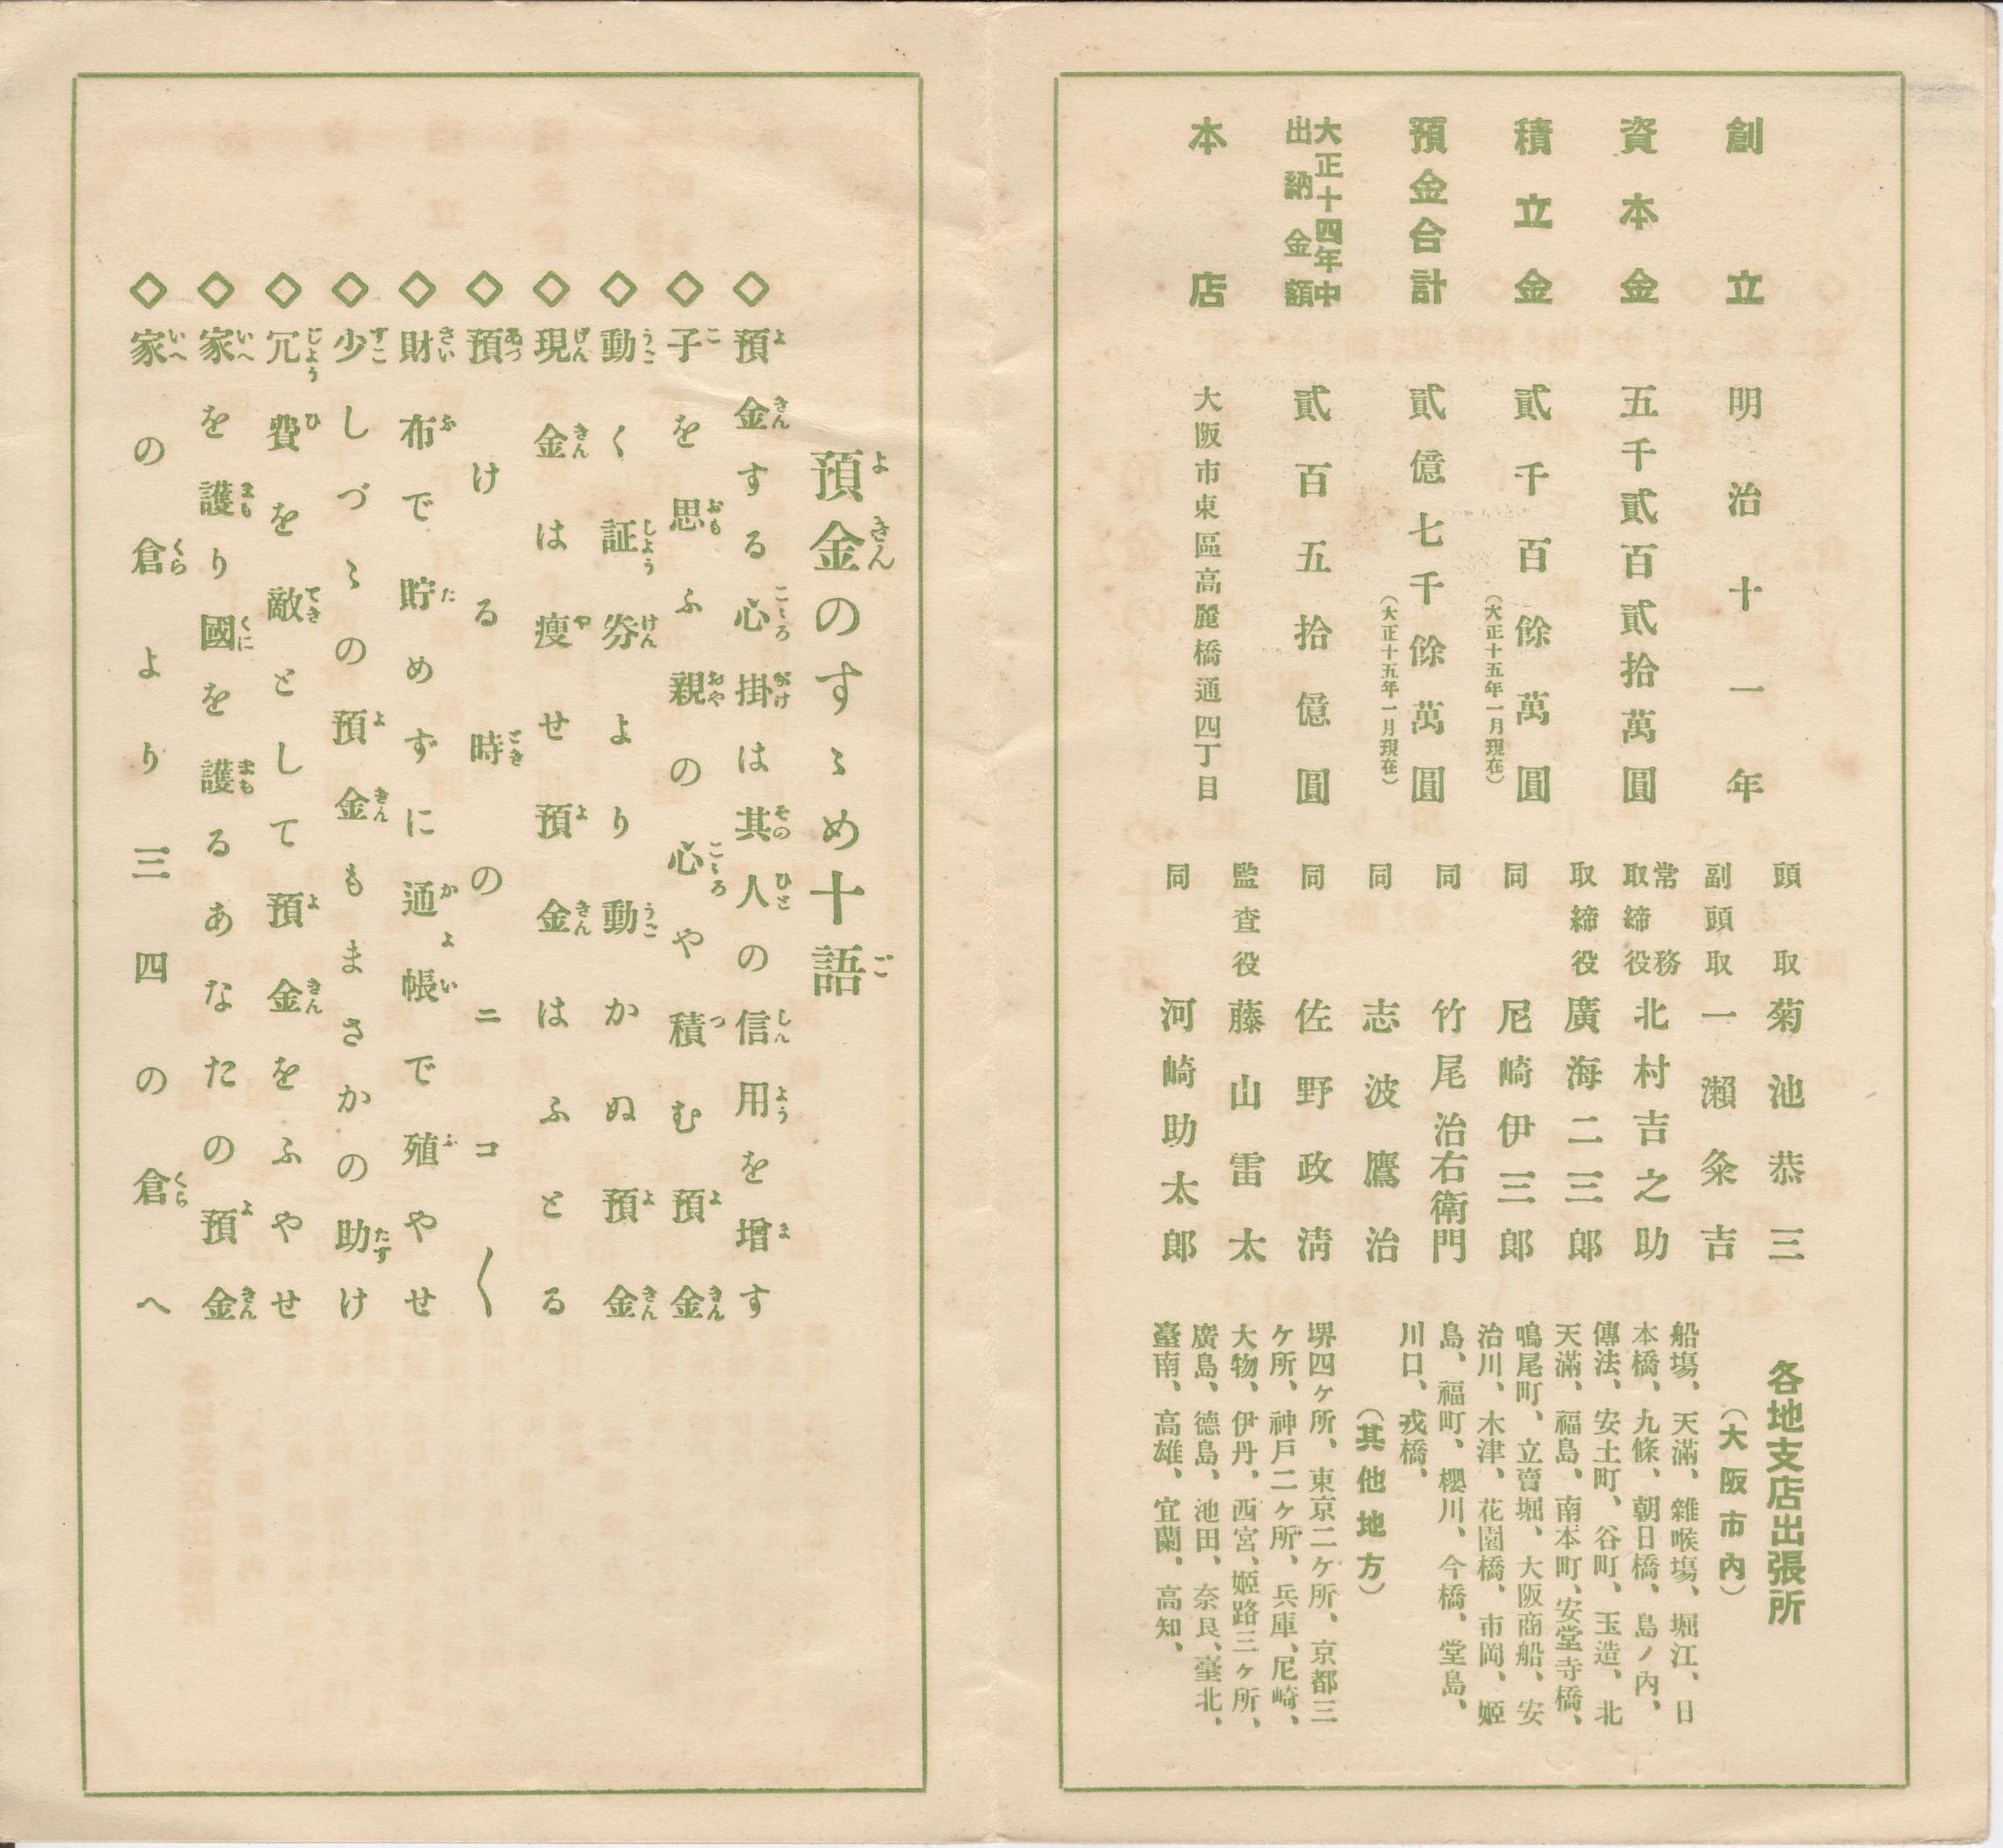 創立 明治十一年
資本金 五千貳百貳拾萬圓
積立金 貳千百餘萬圓
(大正十五年一月現在)
預金合計 貳億七千餘萬圓
(大正十五年一月現在)
大正十四年中
出納金額 貳百五拾億圓
本店 大阪市東區高麗橋通四丁目
頭取 菊池恭三
副頭取 一瀬粂吉
常務
取締役 北村吉之助
取締役 廣海二三郎
同 尼崎伊三郎
同 竹尾治右衛門
同 志波鷹治
同 佐野政清
監査役 藤山雷太
同 河崎助太郎
各地支店出張所
(大阪市内)
船塲、天滿、雜喉塲、堀江、日
本橋、九條、朝日橋、島ノ内、
傳法、安土町、谷町、玉造、北
天滿、福島、南本町、安堂寺橋、
鳴尾町、立賣堀、大阪商船、安
治川、木津、花園橋、市岡、姫
島、福町、櫻川、今橋、堂島、
川口、戎橋、
(其他地方)
堺四ヶ所、東京二ヶ所、京都三
ケ所、神戸二ヶ所、兵庫、尼崎、
大物、伊丹、西宮、姫路三ヶ所、
廣島、德島、池田、奈良、臺北、
臺南、高雄、宜蘭、高知、
預金のすゝめ十語
◇預金する心掛は其人の信用を増す
◇子を思ふ親の心や積む預金
◇動く証劵より動かぬ預金
◇現金は瘦せ預金はふとる
◇預ける時のニコ〱
◇財布で貯めずに通帳で殖やせ
◇少しづゝの預金もまさかの助け
◇冗費を敵として預金をふやせ
◇家を護り國を護るあなたの預金
◇家の倉より三四の倉へ